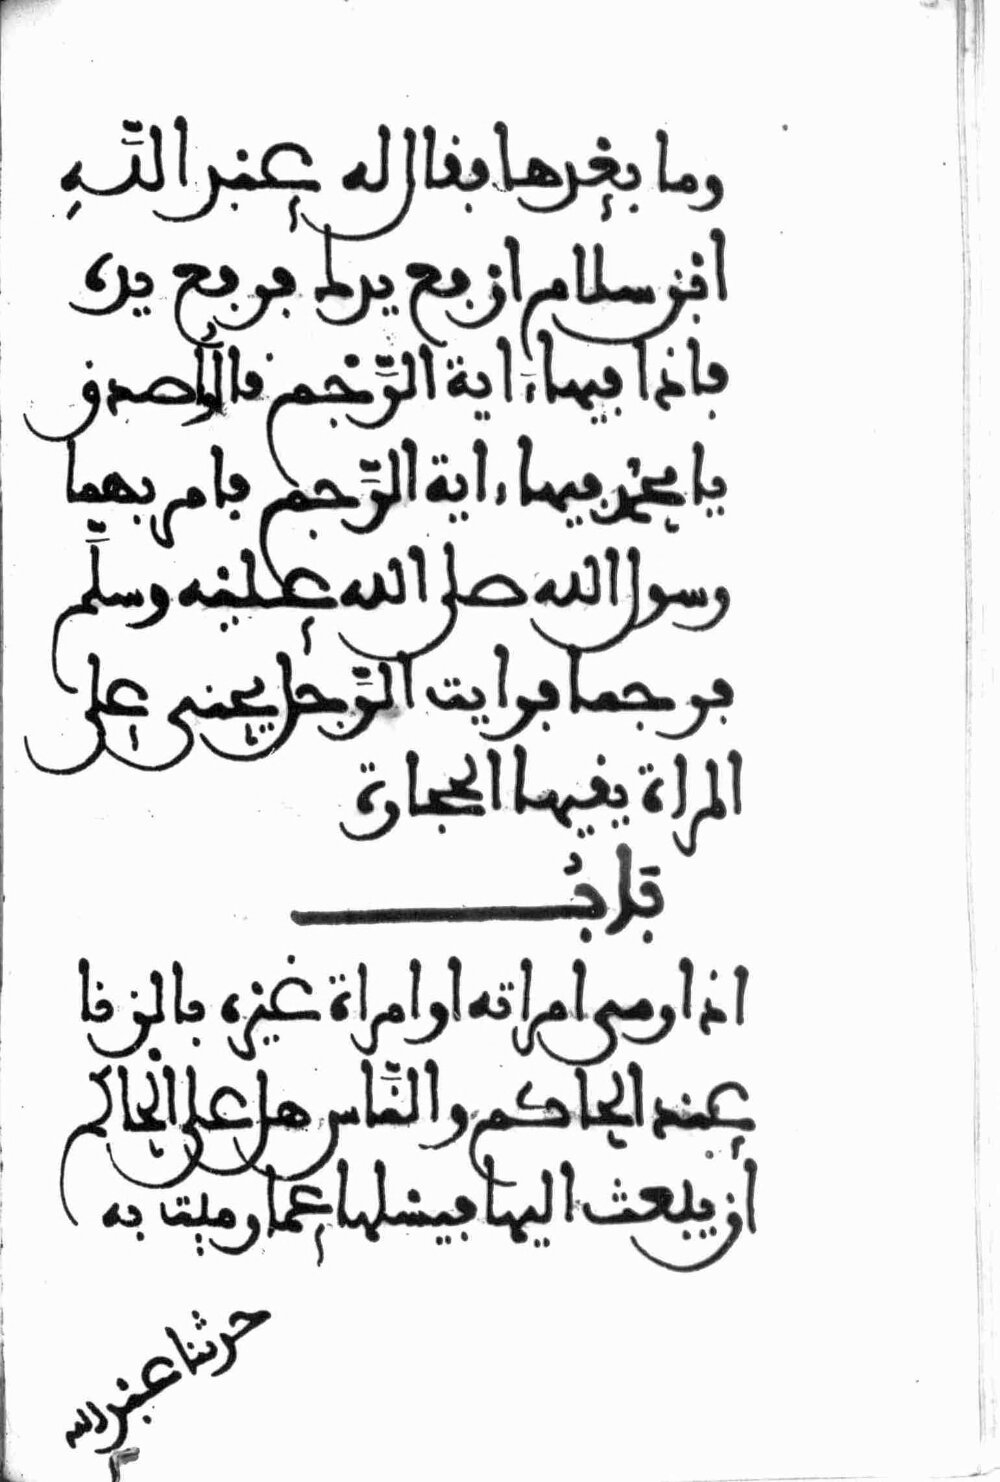 وما بعدها فقال له عبد الله
ابن سلام ارفع يدك فرفع يده
فاذا فيها ءاية الرَّجم قالوا صدق
يا محمد فيها ءاية الرَّجم فامر بهما
رسول الله صلى الله عليه وسلَّم
فرجما فرايت الرَّجل يحنى على
المراة يقيها الحجارة
باب
اذا رمى امراته او امراة غيره بالزنا
عند الحاكم والنَّاس هل على الحاكم
ان يبعث اليها فيسئلها عما رميت به
حدثنا عبد الله